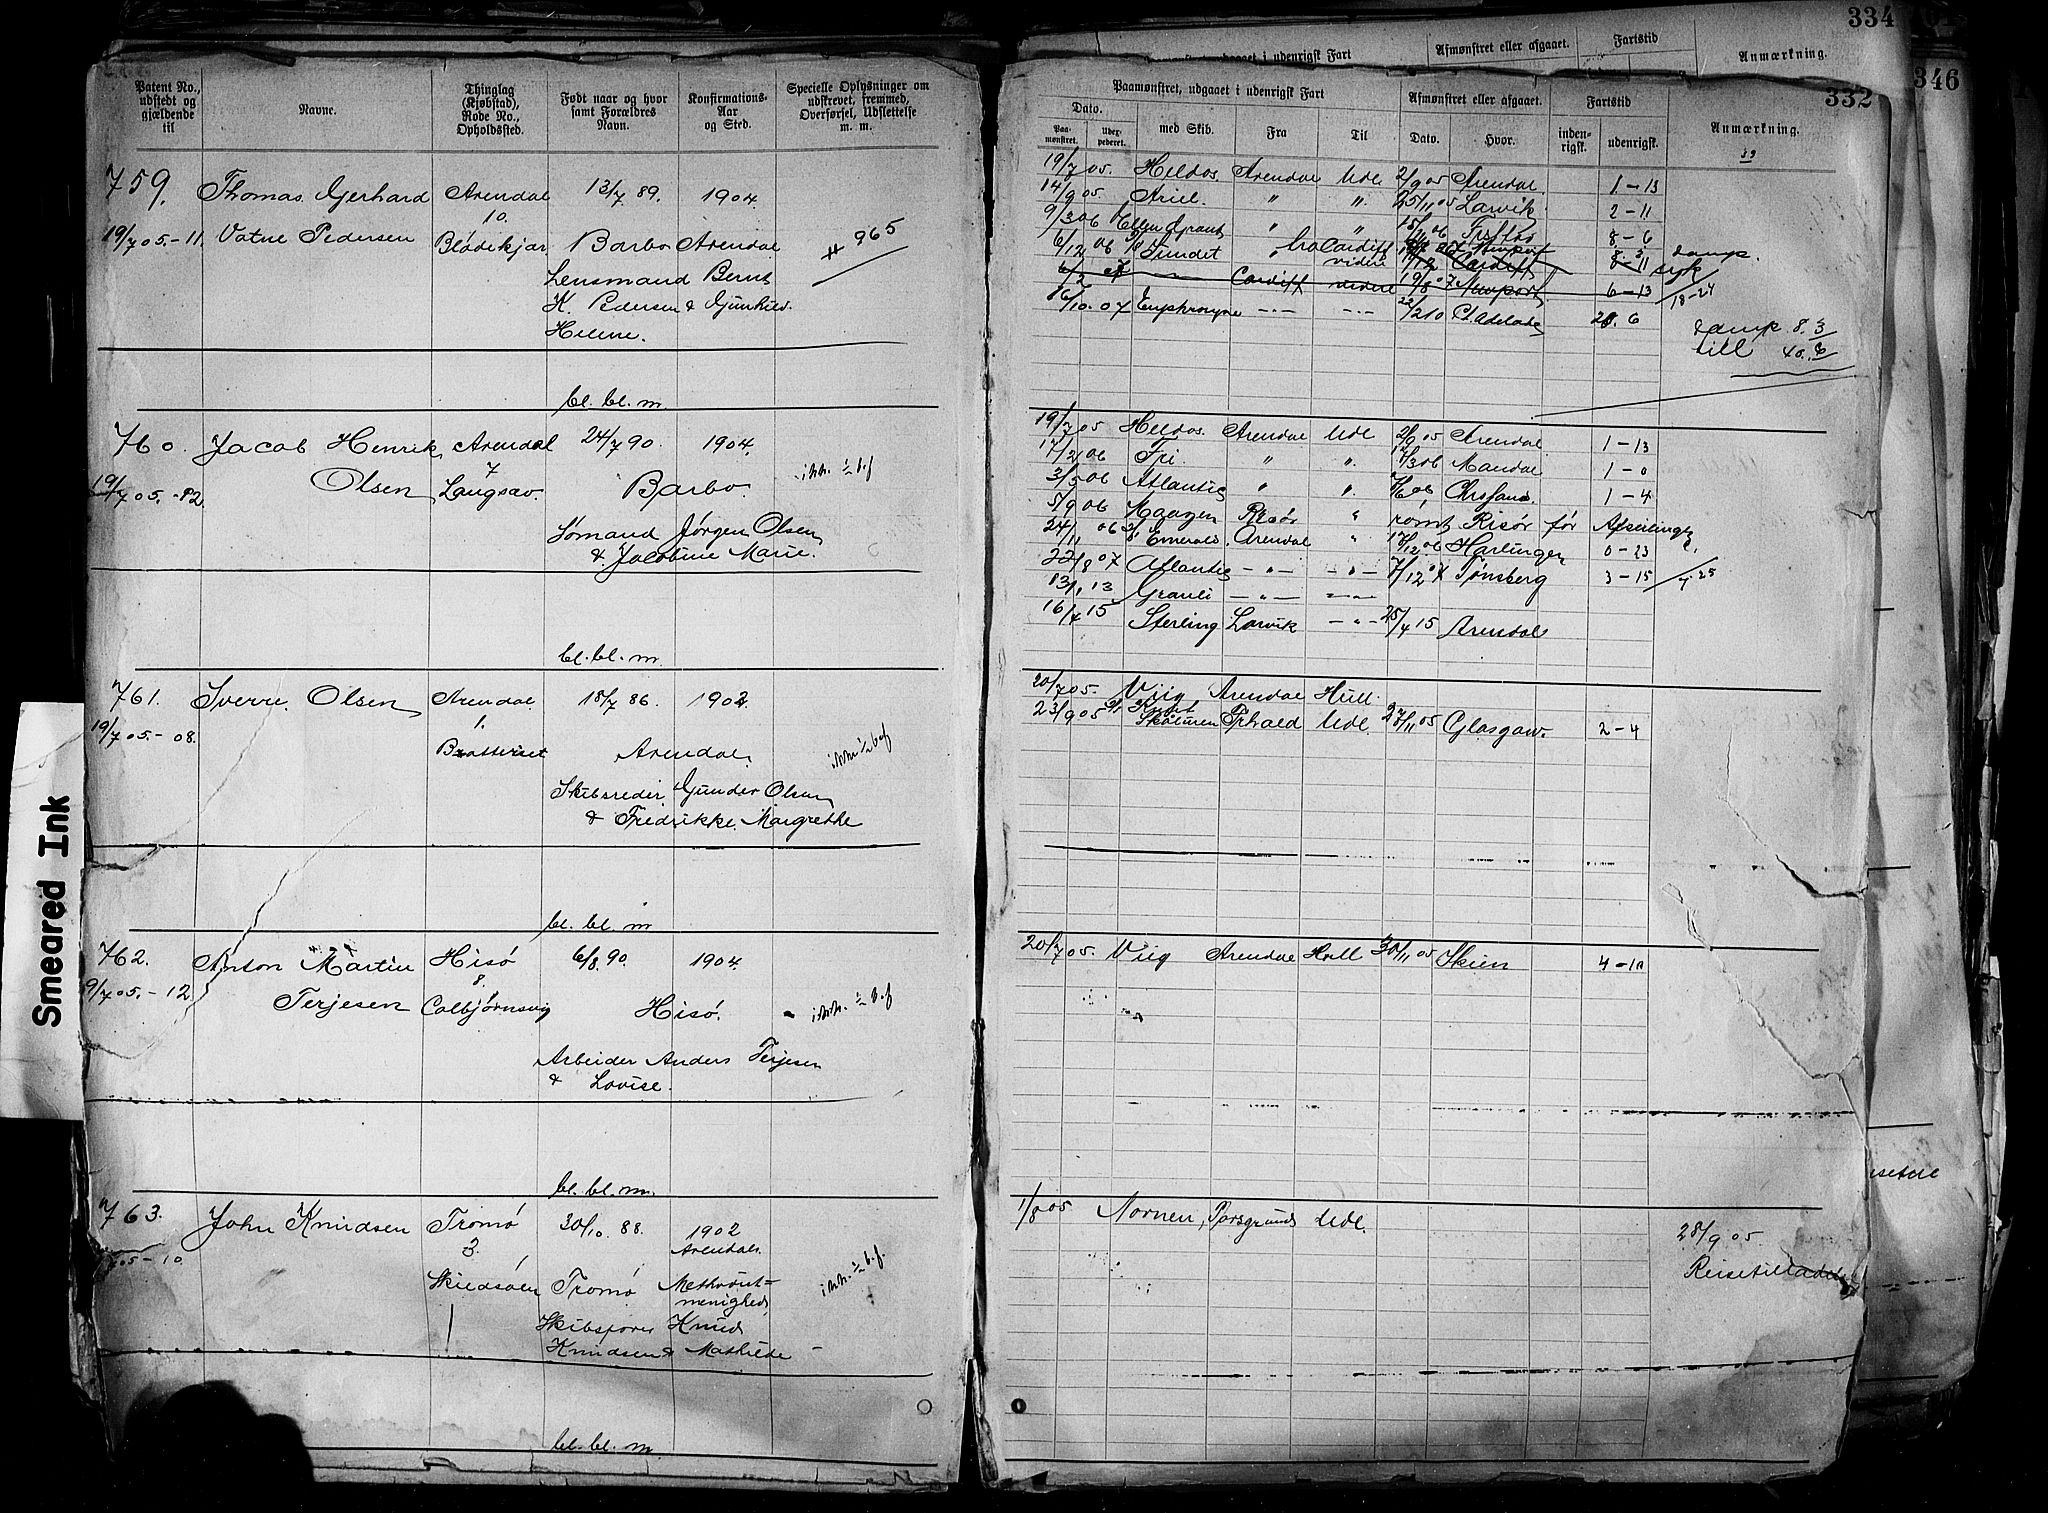 334
346
332
Afmønstret eller afgaaet. Fartstid Anmærkning.
Patent No., udstedt og gjældende til
Navne.
Thinglag (Kjøbstad), Rode No., Opholdssted.
Født naar og hvor samt Forældres Navn.
Konfirmations-Aar og Sted.
Specielle Oplysninger om udskrevet, fremmed, Overførsel, Udslettelse m. m.
Paamønstret, udgaaet i udenrigsk Fart
Afmønstret eller afgaaet.
Fartstid
Anmærkning.
Dato.
Paa-mønstret.
med Skib.
Fra
Til
Dato.
Hvor.
inden-rigsk.
udenrigsk.
759. Thomas Gerhard Arendal 13/7 89. 1904.
10.
19/7 05.-11. Vatne Pedersen Barbo Arendal 965
Lensmand Bernt
K. Pedersen & Gunhild
Helene.
bl. bl. m.
19/7 05. Arendal Udl 2/9 05 Arendal. 1-13
14/9 05. Ariel. " " 25/11 05 Larvik 2-11
9/3 06 " " 8-6
6/12 06 Cardiff
Cardiff videre 19/8 07 6-13
18-24
16/10. 07 Euphrosyne -"- -"- 28. 6
8. 3
till 40. 6
760. Jacob Henrik Arendal 24/7 90. 1904.
7
19/7 05.-12. Olsen Langsæv. Barbo.
Sømand Jørgen Olsen
& Jacobine Marie.
bl. bl. m.
19/7 05 Arendal Udl 2/9 05 Arendal 1-13
17/2 06 Fri. " " Mandal 1-0
3/5 06 Atlantic " " Chrsand. 1-4
5/9 06 Maagen Risør " rømt Risør før Afseiling
24/11 06 Emerald. Arendal " 18/12 06 Harlingen 0-23
22/8 07 Atlantic -"- -"- 7/12 07 Tønsberg 3-15 7-25
13/1 13 Grauli -"- -"-
16/4 15 Sterling Larvik -"- 25/4 15 Arendal
761. Sverre Olsen Arendal 18/7 86. 1902
1.
19/7 05.-08. Arendal.
Skibsreder Gunder Olsen
& Fredrikke Margrethe
bl. bl. m
20/7 05. Viig Arendal Hull.
23/9 05 Udl. 27/11 05 Glasgow. 2-4
762. Anton Martin Hisø 6/8. 90. 1904.
8.
9/7 05.-12 Terjesen Colbjørnsvig Hisø.
Arbeider Anders Terjesen
& Lovise.
bl. bl. m.
20/7 05. Viig Arendal Hull 30/11 05 Skien 4-10
763. John Knudsen Tromø 30/10. 88. 1902
3. Arendal.
05-10. Skudsøen Tromø Methodist-
menighed
Skibsfører Knud
Knudsen & Mathilde
bl. bl. m
1/8 05 Nornen, Porsgrund Udl.
28/9 05.
Reisetilladelse
Smeared Ink